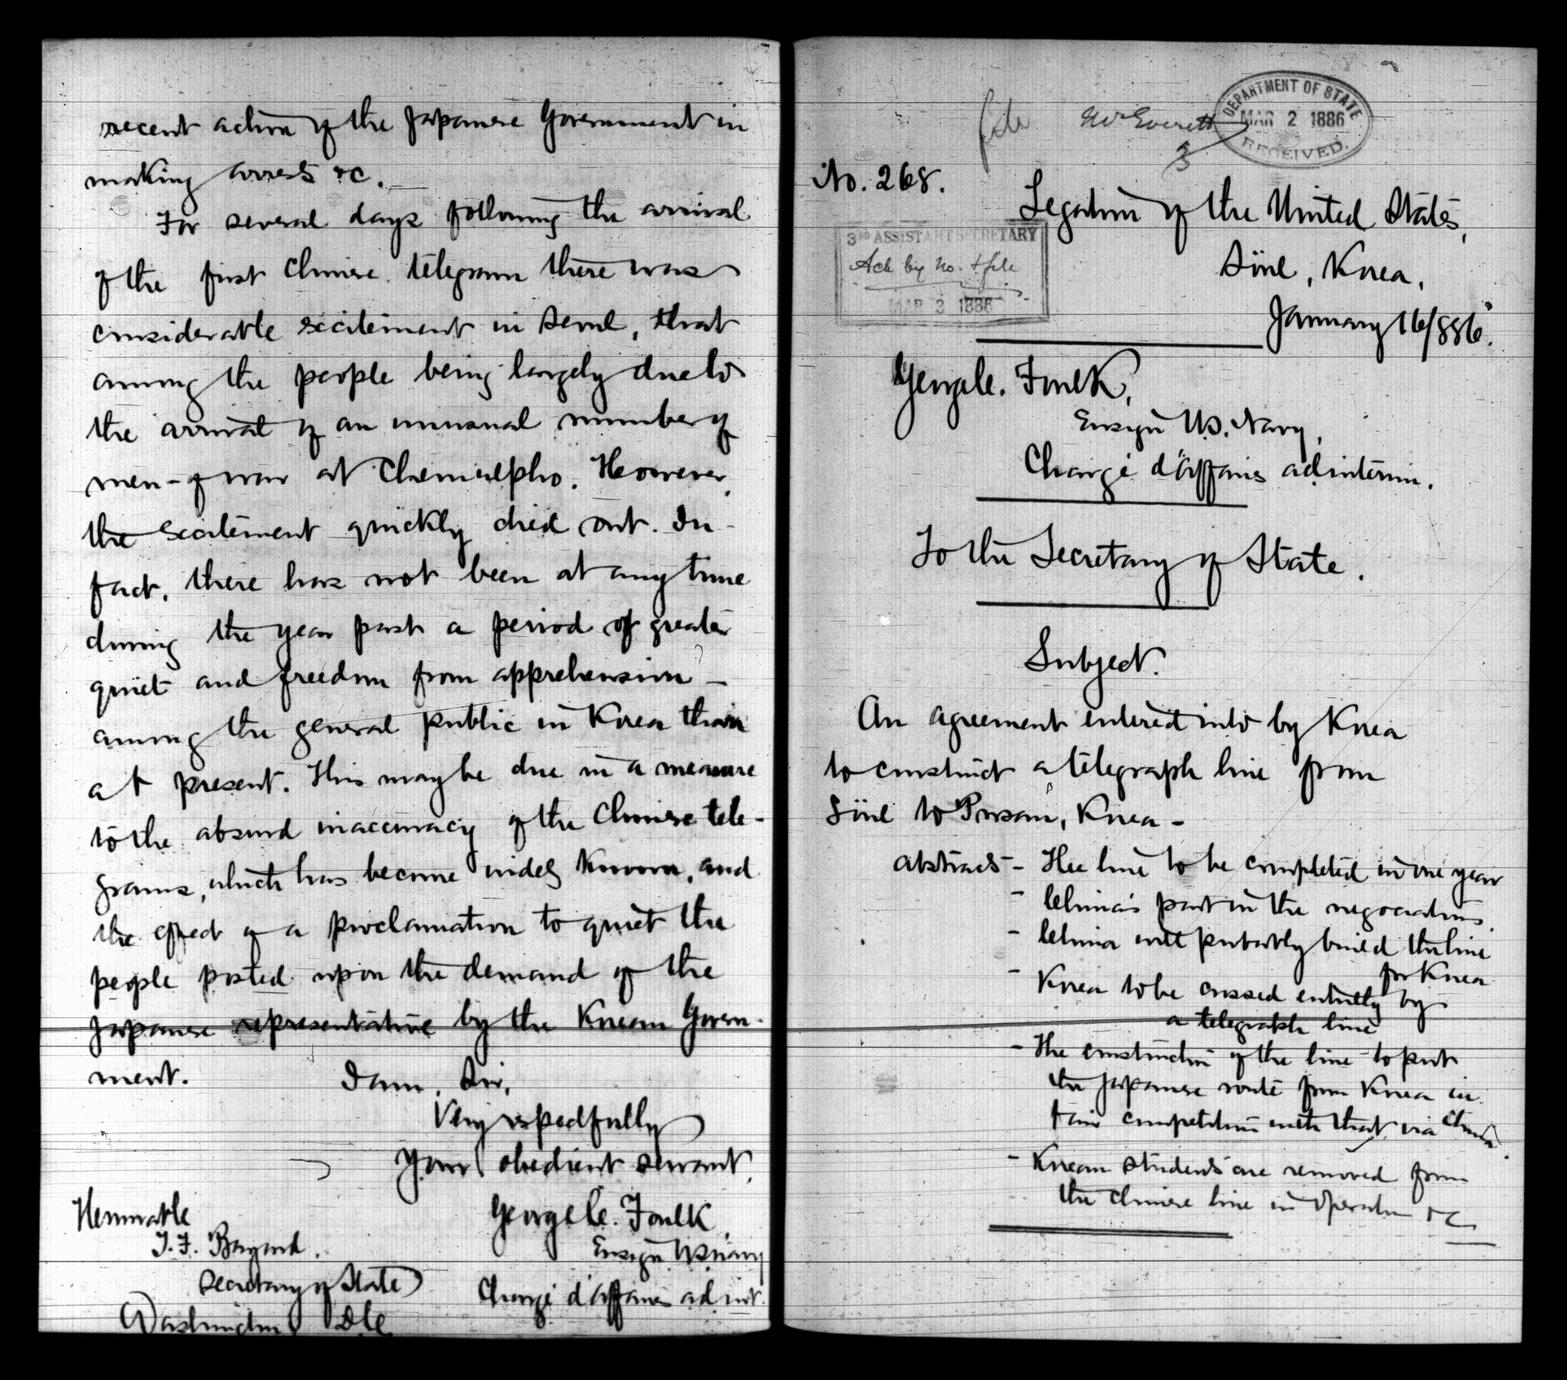 recent action of the Japanese Government in
making arrests &c.
For several days following the arrival
of the first Chinese telegram there was
considerable excitement in Seoul, that
among the people being largely due to
the arrival of an unusual number of
men-of-war at Chemulpho. However,
the excitement quickly died out. In
fact, there has not been at any time
during the year past a period of greater
quiet and freedom from apprehension –
among the general public in Korea than
at present. This may be due in a measure
to the absurd inaccuracy of the Chinese tele-
grams, which has become widely known, and
the effect of a proclamation to quiet the
people posted upon the demand of the
Japanese representative by the Korean Govern-
ment.
I am, Sir,
Very respectfully
Your obedient servant,
George C. Foulk,
Ensign U.S. Navy
Chargé d'Affaires ad int.
Honorable
T. F. Bayard,
Secretary of State
Washington D.C.
file Mr Everett
3
DEPARTMENT OF STATE
MAR 2 1886
RECEIVED.
No. 268.
Legation of the United States,
Söul, Korea,
January 16/886.
3RD ASSISTANT SECRETARY
Ack by No. & file
MAR 3 1886
George C. Foulk,
Ensign U.S. Navy,
Chargé d'Affaires ad interim.
To the Secretary of State.
Subject.
An agreement entered into by Korea
to construct a telegraph line from
Söul to Pusan, Korea –
Abstract – The line to be completed in one year
- China's part in the negociations
- China will probably build the line
for Korea
- Korea to be crossed entirely by
a telegraph line
- The construction of the line to put
the Japanese route from Korea in
fair competition with that via China.
- Korean students are removed from
the Chinese line in operation &c